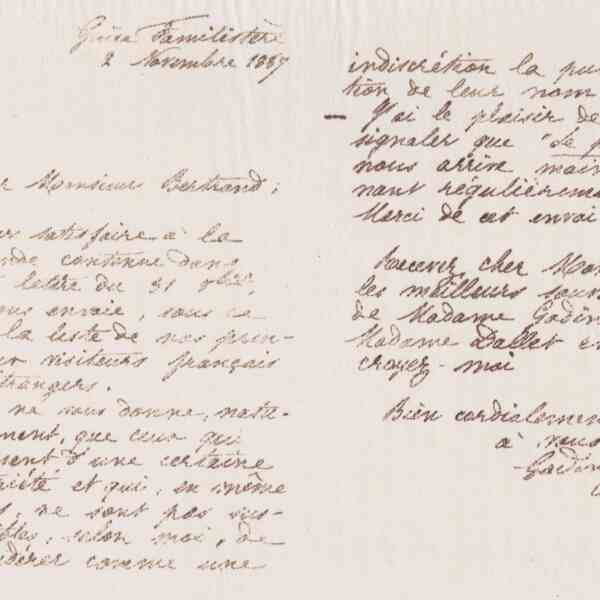 Guise Familistère
2 Novembre 1887
r Monsieur Bertrand;
ur satisfaire à la
nde contenue dans
lettre du 31 8bre,
ous envoie, sous ce
la liste de nos prin-
ux visiteurs français
étrangers.
ne vous donne, natu-
ment, que ceux qui
ssent d'une certaine
riété et qui, en même
s, ne sont pas sus-
ibles, selon moi, de
idérer comme une
indiscrétion la pu
tion de leur nom
— J'ai le plaisir de
signaler que "Le p
nous arrive main
nant régulièreme
Merci de cet envoi
Recevez, cher Mon
les meilleurs souv
de Madame Godin
Madame Dallet e
croyez-moi
Bien cordialemen
à vous
Godin